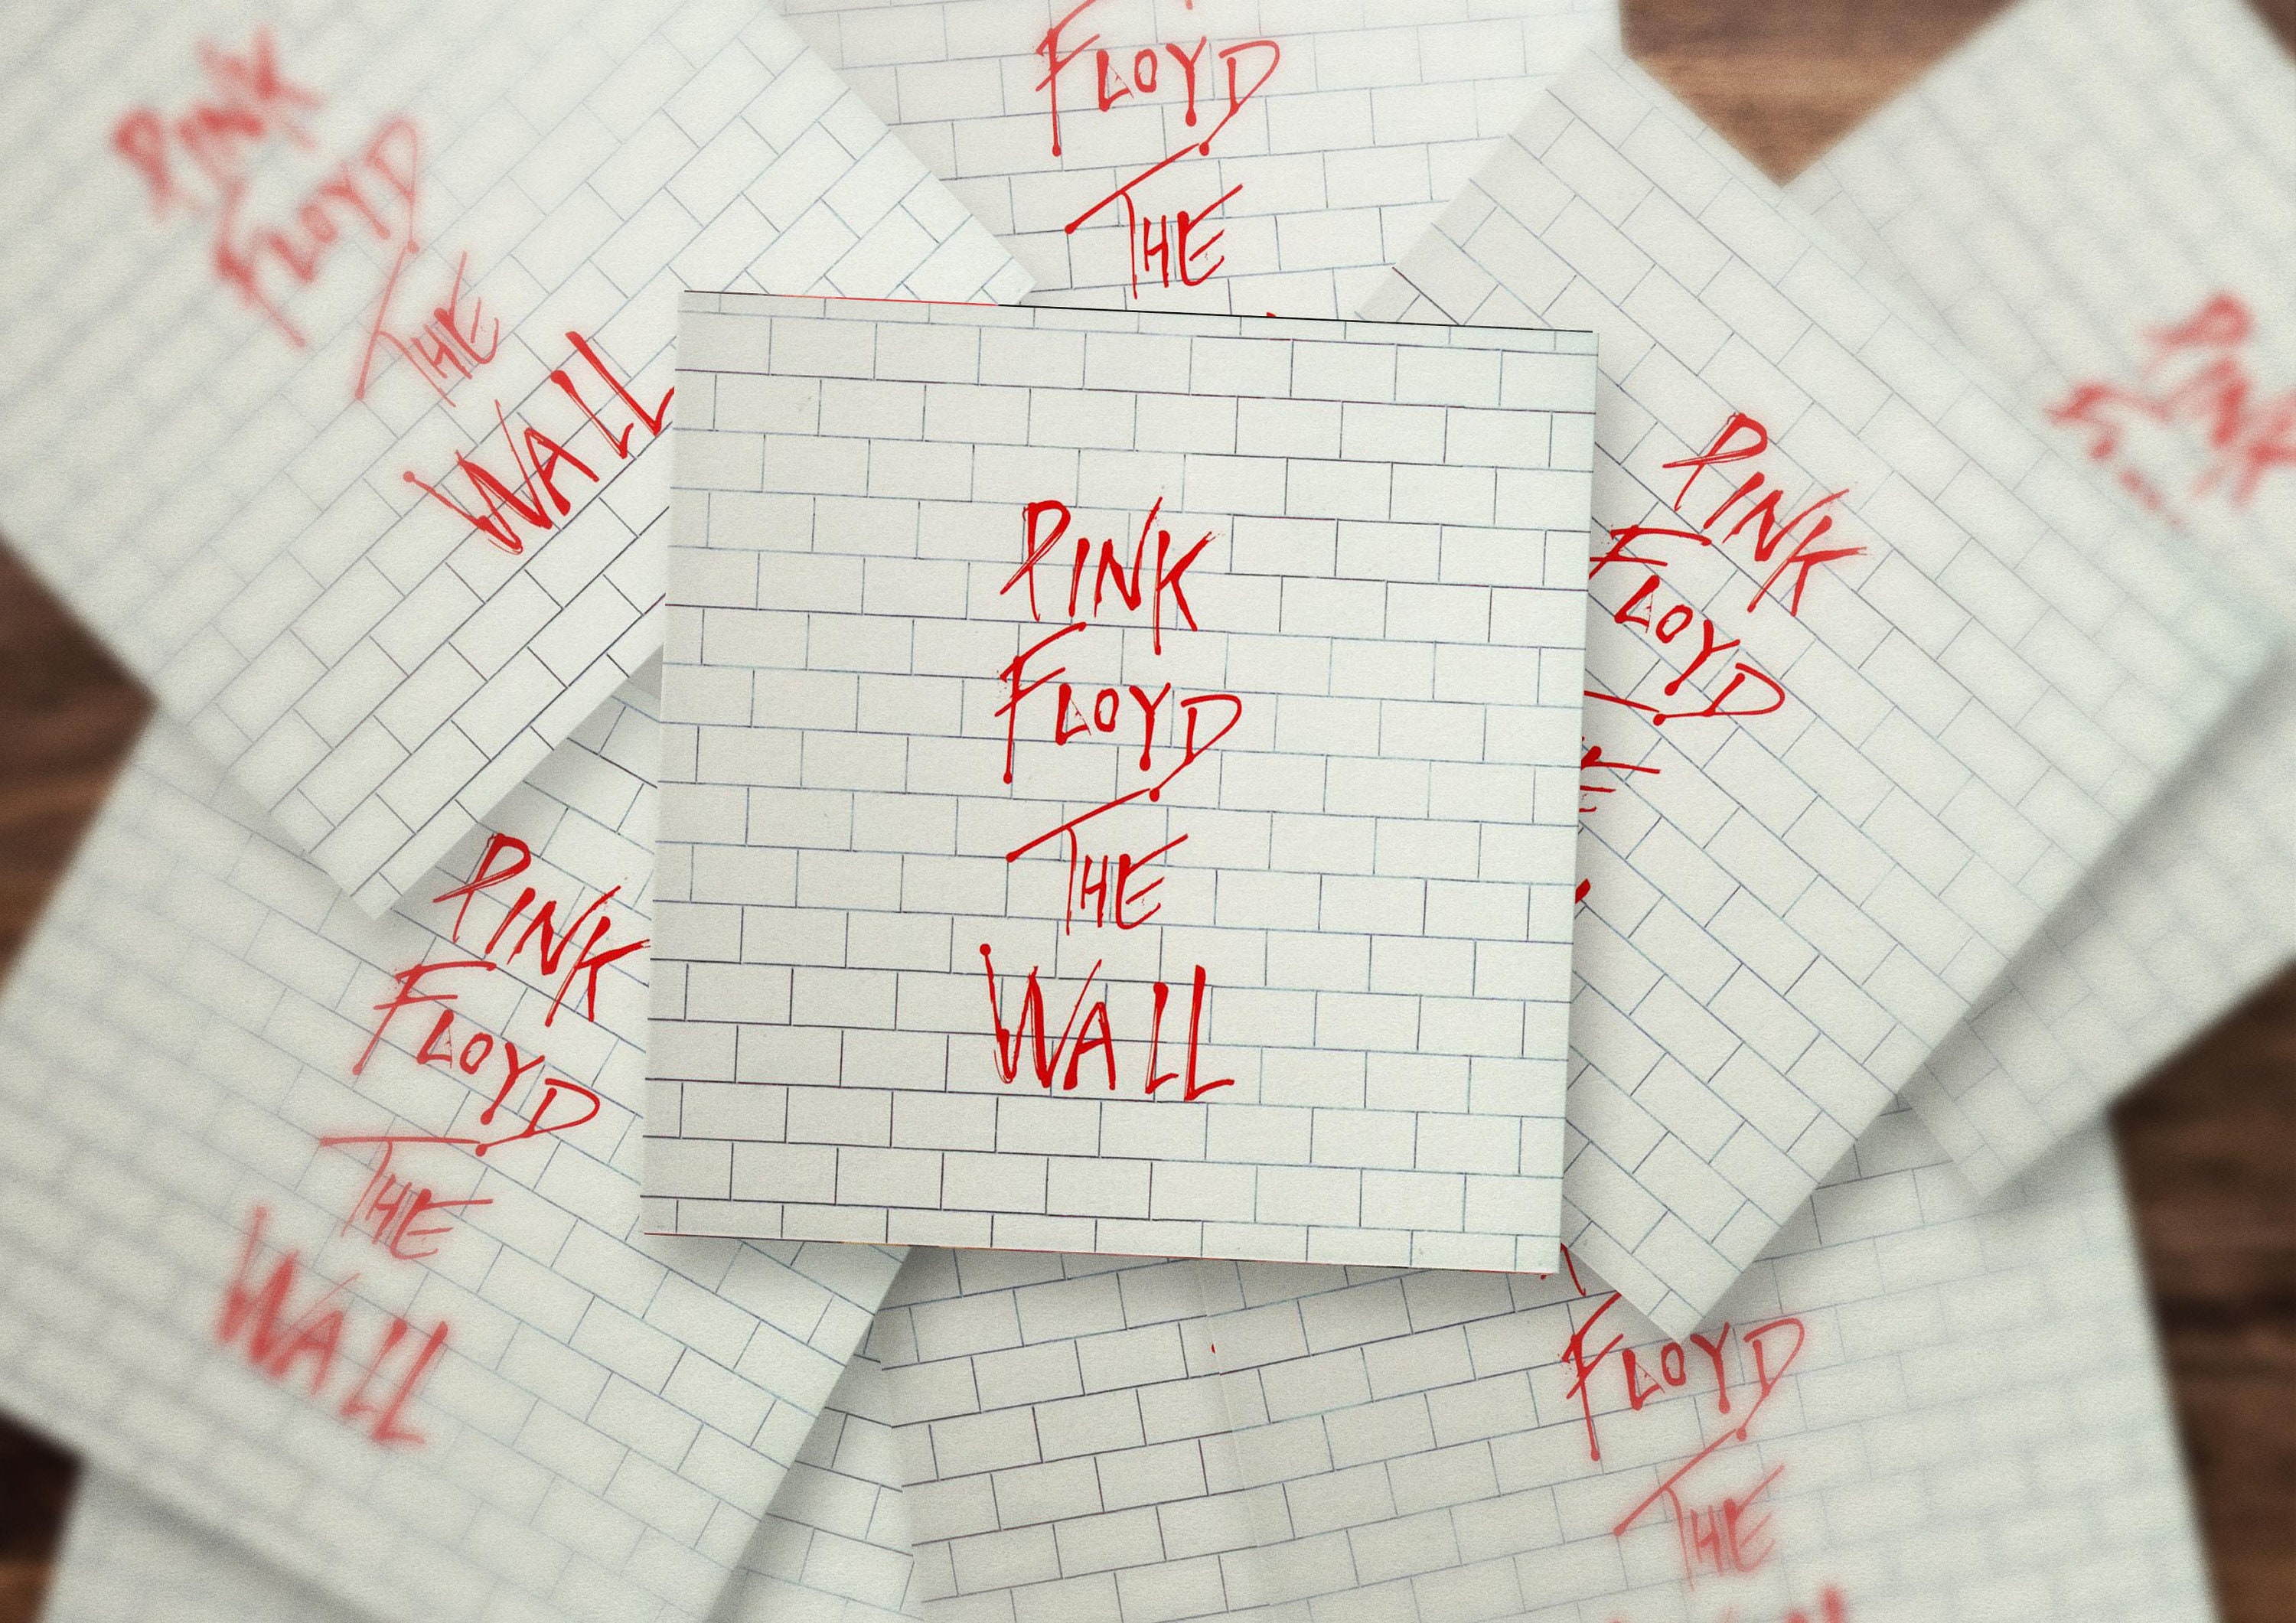 PINK
FLOYD
THE
WALL
FLOYD
THE
PINK
FLOYD
THE
WALL
PINK
FLOYD
PINK
PINK
FLOYD
THE
WALL
FLOYD
THE